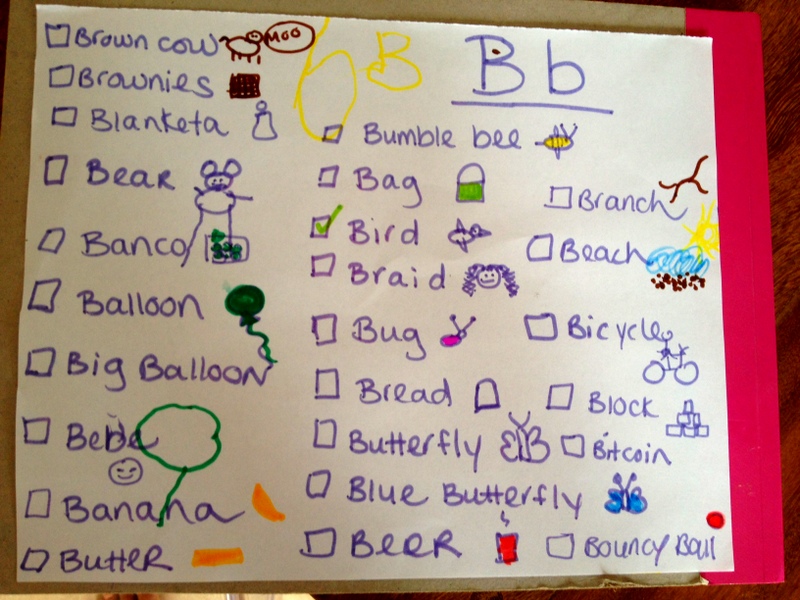 B b
b B
Brown cow
MOO
Brownies
Blanketa
Bear
Banco
Balloon
Big Balloon
Bebe
Banana
Butter
Bumble bee
Bag
Bird
Braid
Bug
Bread
Butterfly
Blue Butterfly
Beer
Branch
Beach
Bicycle
Block
Bitcoin
Bouncy Ball